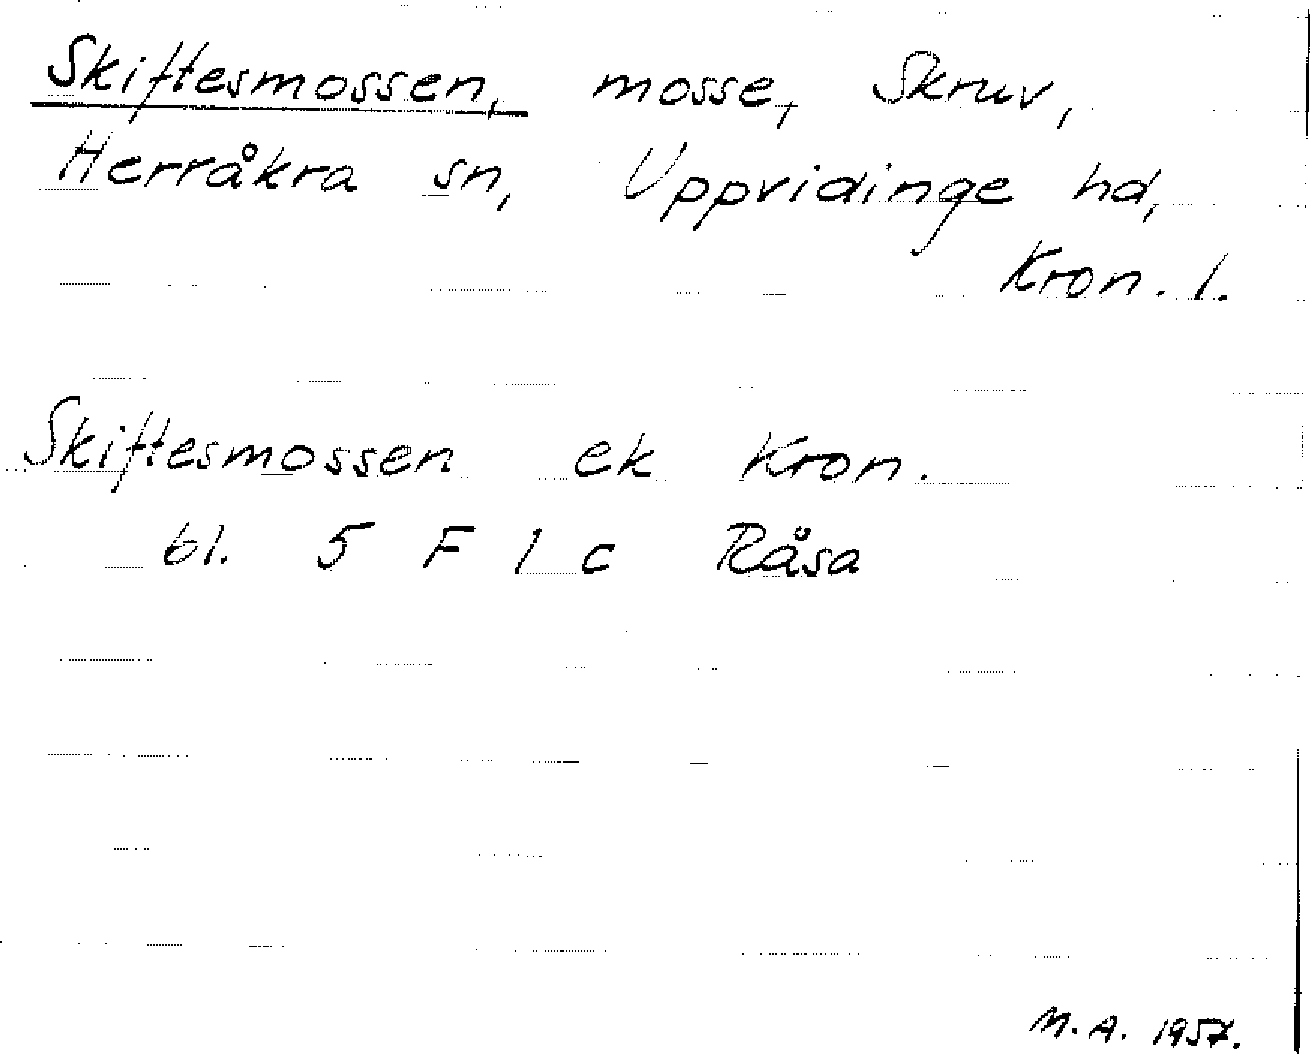 Skiftesmossen, mosse, Skruv,
Herråkra sn, Uppvidinge hd,
Kron. l.
Skiftesmossen ek Kron.
bl. 5 F 1 c Råsa
M.A. 1957.